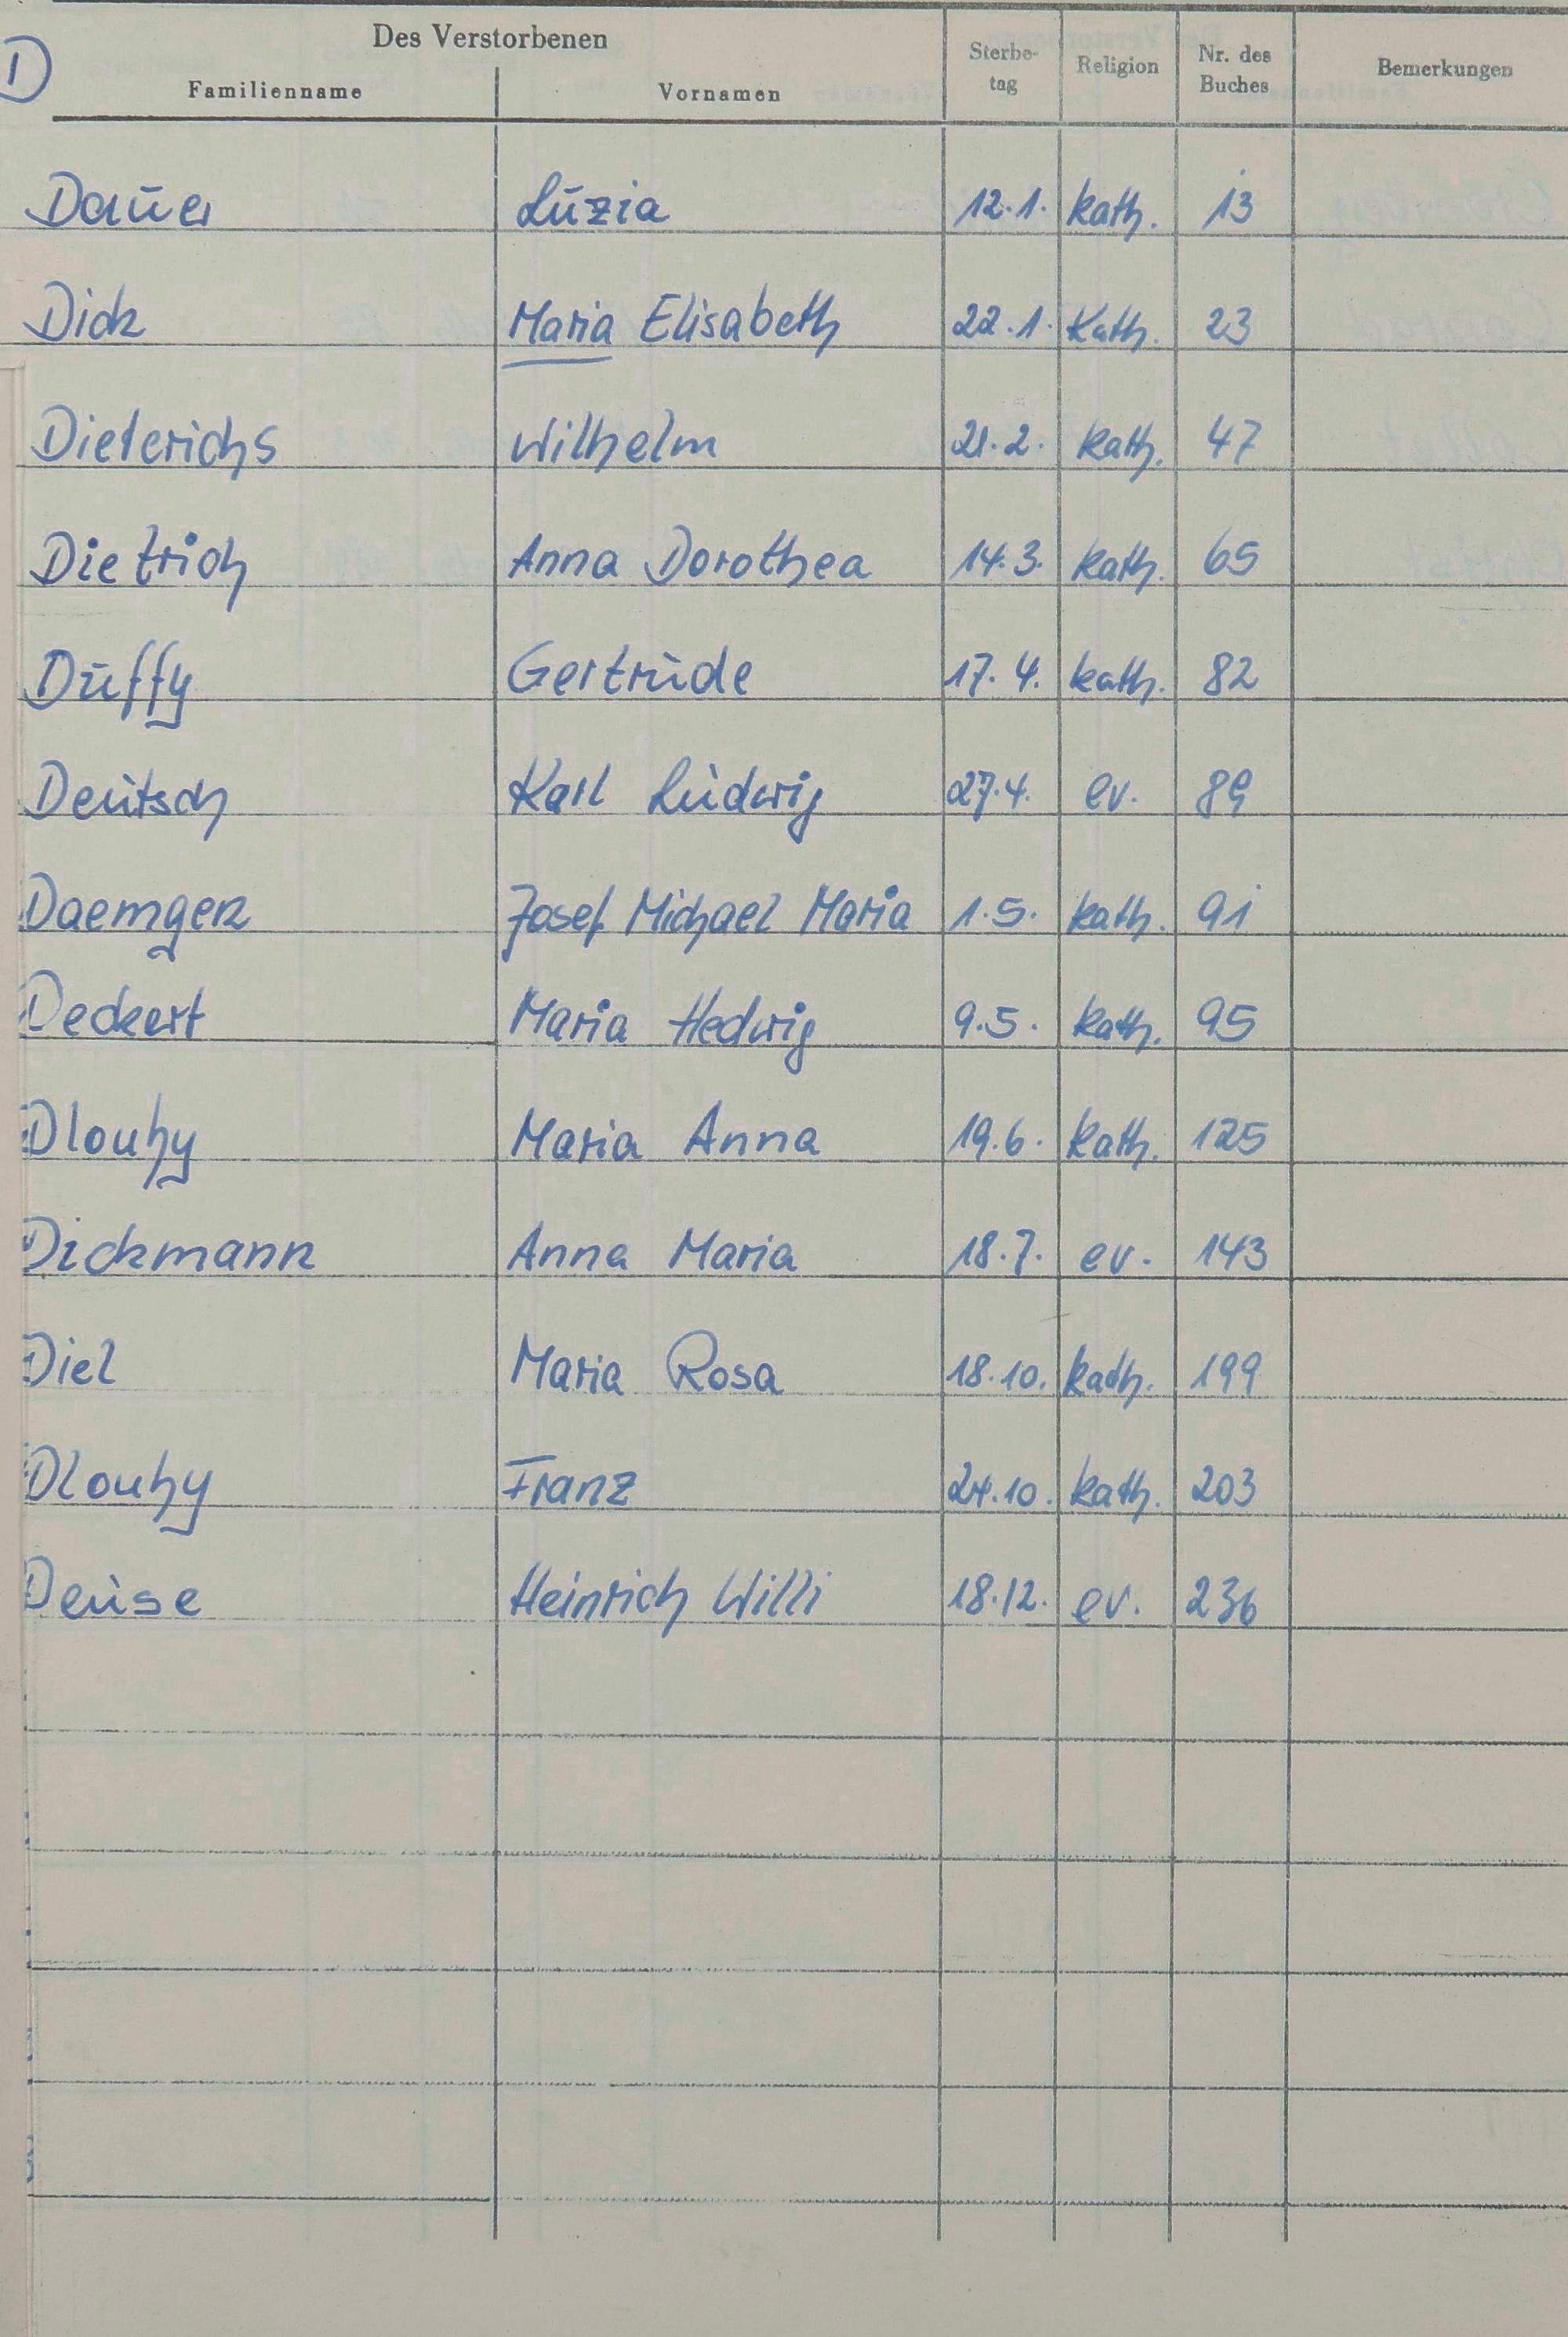 D
Des Verstorbenen
Familienname Vornamen Sterbe-tag Religion Nr. des Buches Bemerkungen
Dauer Luzia 12.1. kath. 13
Dick Maria Elisabeth 22.1. Kath. 23
Dieterichs Wilhelm 21.2. kath. 47
Dietrich Anna Dorothea 14.3. kath. 65
Duffy Gertrude 17.4. kath. 82
Deutsch Karl Ludwig 27.4. ev. 89
Daemgen Josef Michael Maria 1.5. kath. 91
Deckert Maria Hedwig 9.5. kath. 95
Dlouhy Maria Anna 19.6. kath. 125
Dickmann Anna Maria 18.7. ev. 143
Diel Maria Rosa 18.10. kath. 199
Dlouhy Franz 24.10. kath. 203
Deuse Heinrich Willi 18.12. ev. 236